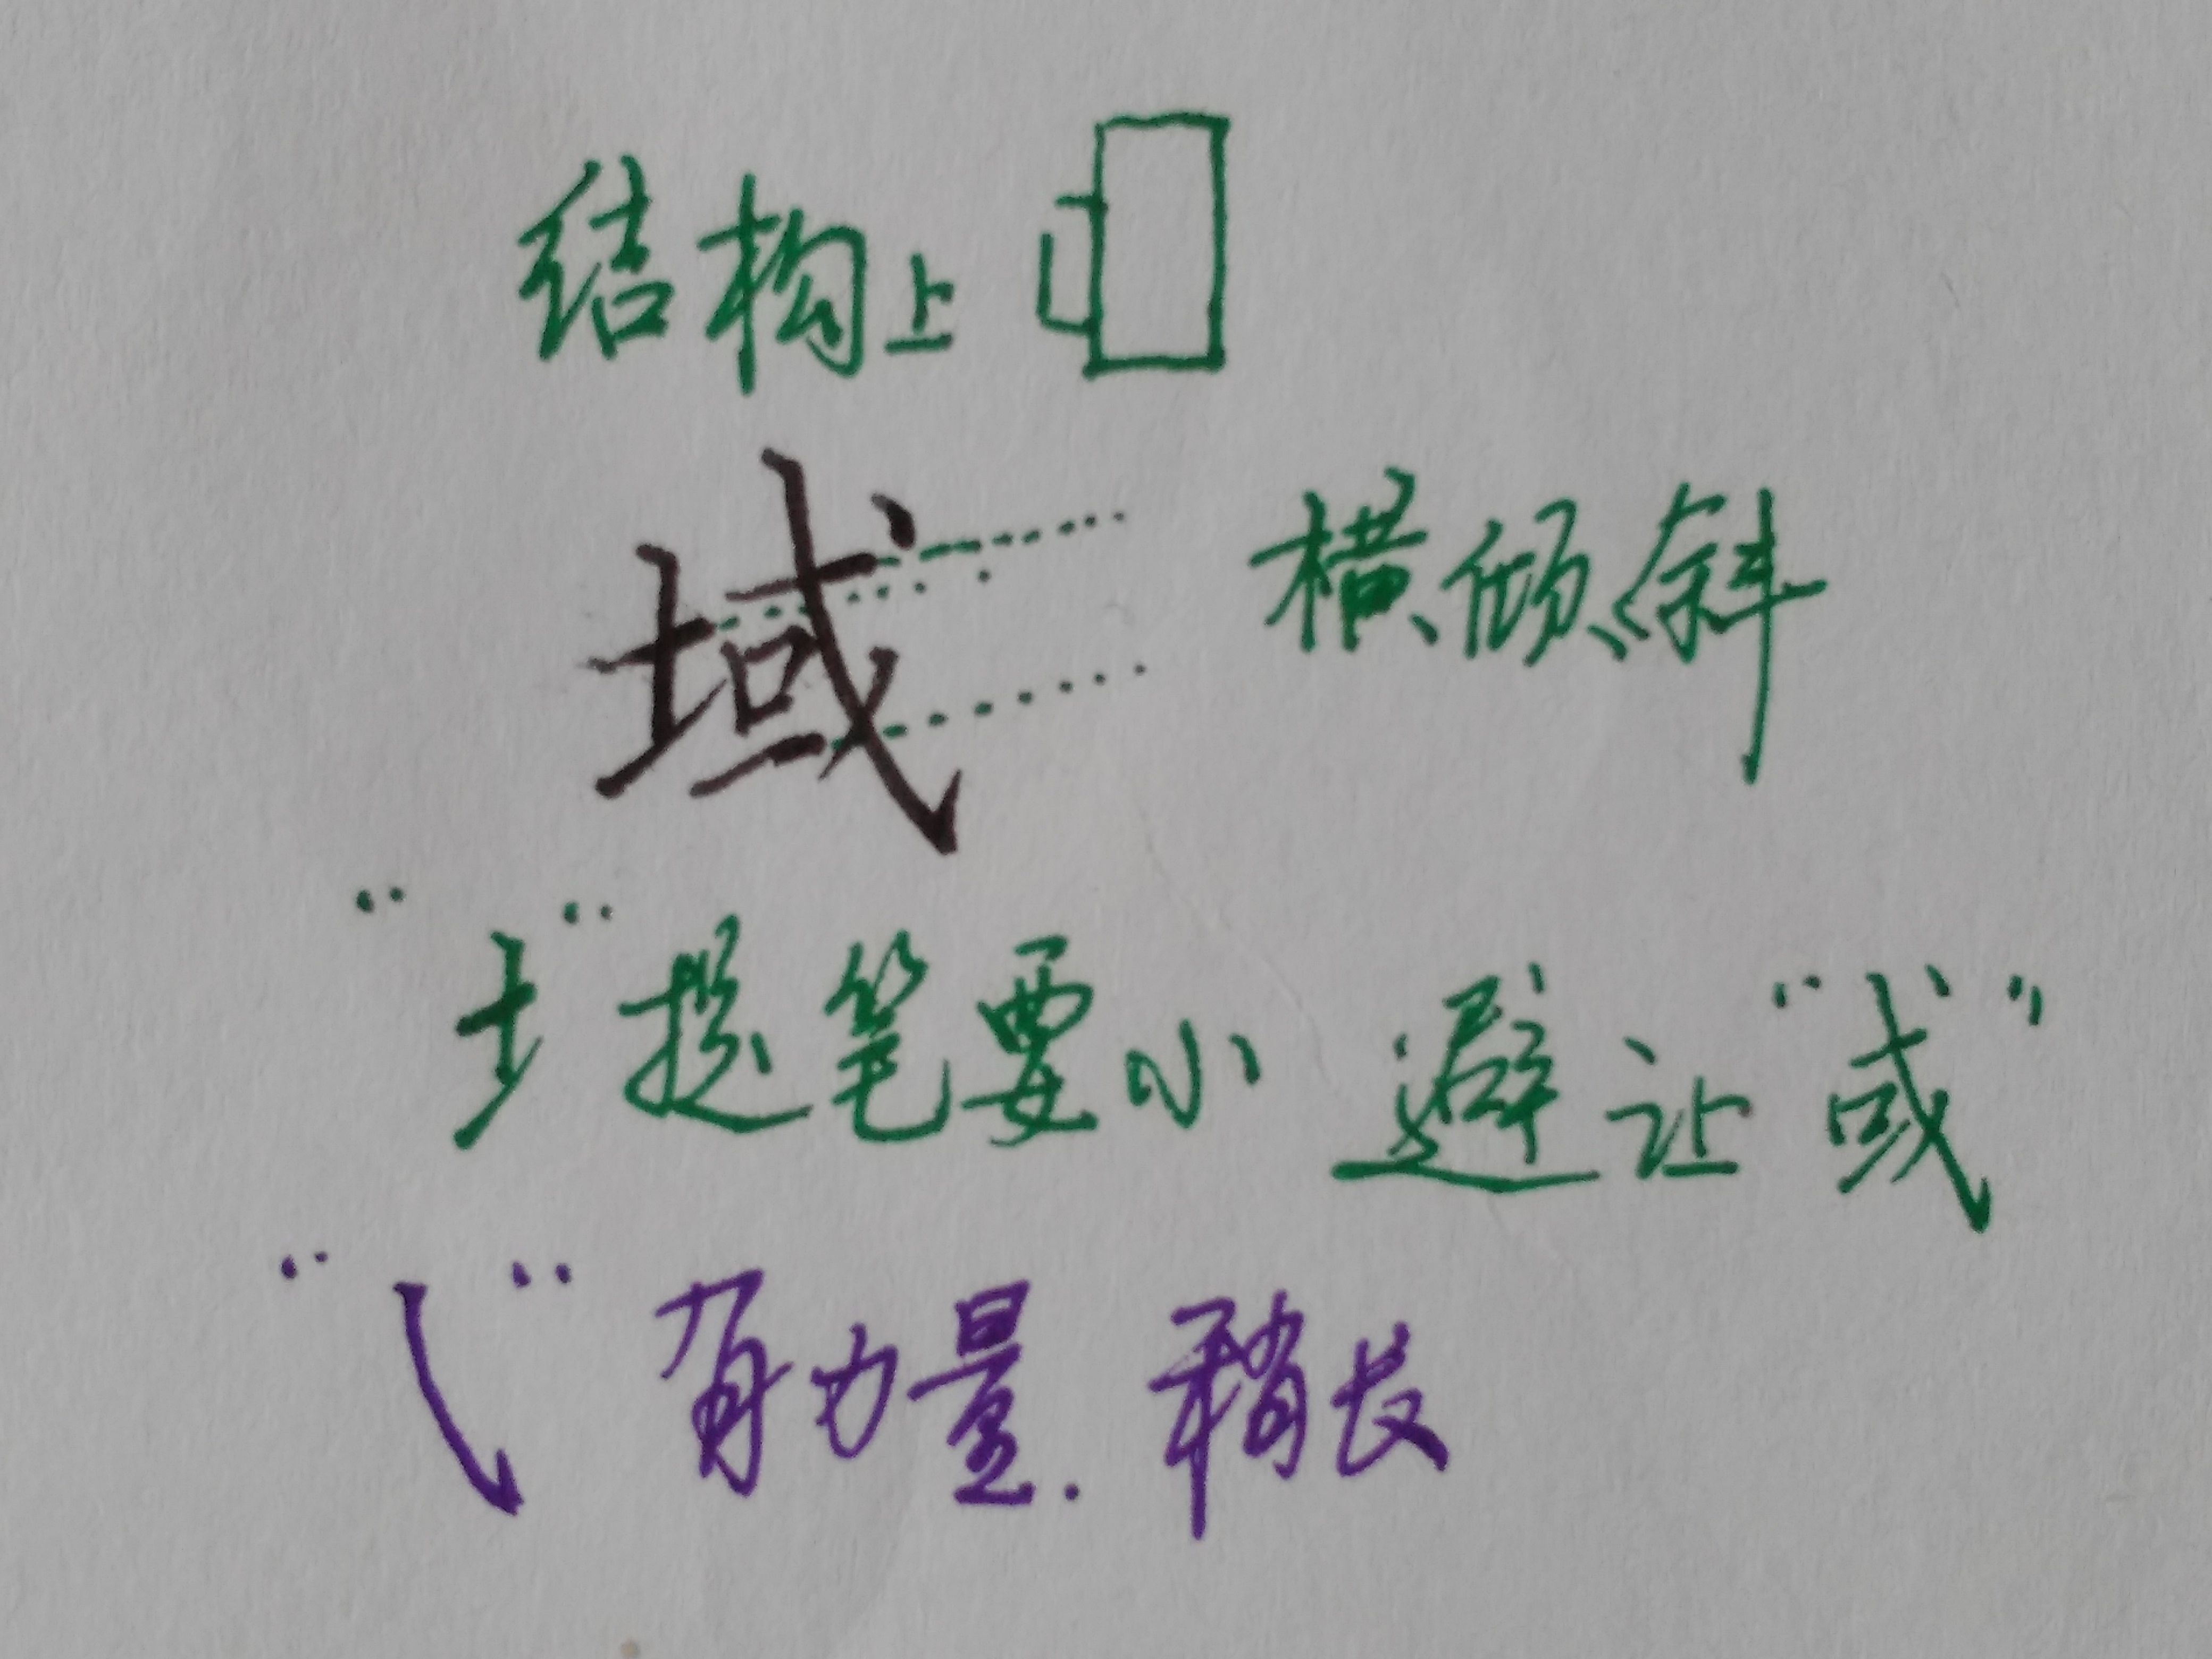 结构上
域 横倾斜
“土”提笔要小 避让“或”
“㇂”有力量.稍长